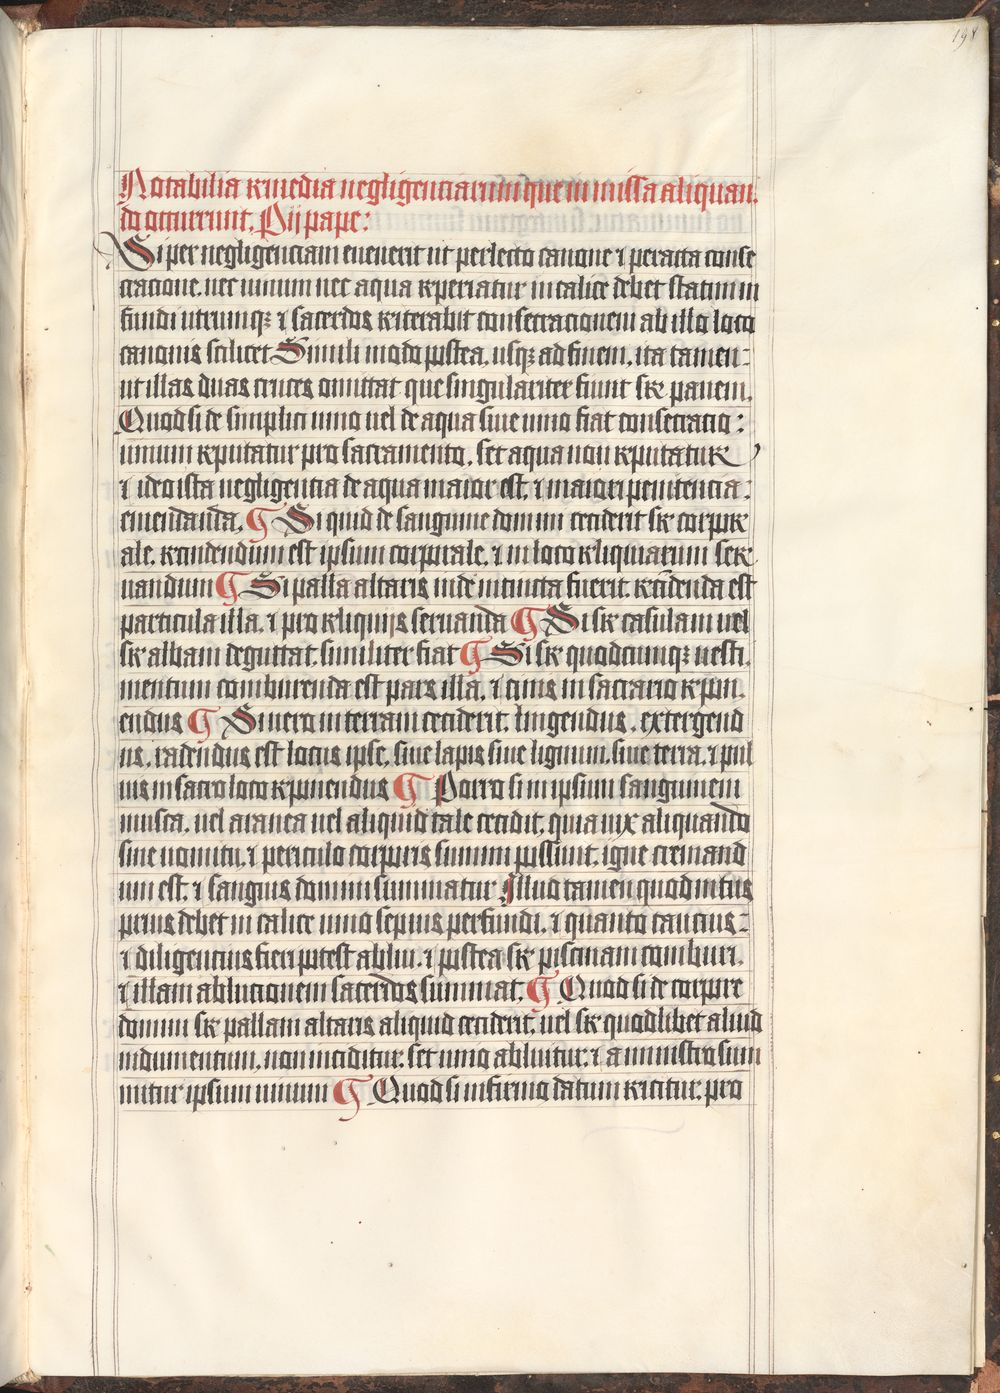 198
Notabilia remedia negligenciarum que in missa aliquan,
do occurrunt. Pij pape:
Si per negligenciam evenerit ut perlecto canone ⁊ peracta conse
cracione. nec uinum nec aqua reperiatur in calice debet statim in
fundi utrumqꝫ ⁊ sacerdos reiterabit consecracionem ab illo loco
canonis scilicet Simili modo postea. usqꝫ ad finem. ita tamen:
ut illas duas cruces omittat que singulariter fiunt sr̄ panem.
Quod si de simplici uino uel de aqua sine uino fiat consecracio:
uinum reputatur pro sacramento. set aqua non reputatur
⁊ ideo ista negligencia de aqua maior est. ⁊ maiori penitencia:
emendanda. ¶ Si quid de sanguine domini ceciderit sr̄ corpor
ale. recindendum est ipsum corporale. ⁊ in loco reliquiarum ser
uandum ¶ Si palla altaris inde intincta fuerit. rescidenda est
particula illa. ⁊ pro reliquijs seruanda ¶ Si sr̄ casulam uel
sr̄ albam deguttat. similiter fiat ¶ Si sr̄ quodcumqꝫ uesti,
mentum comburenda est pars illa. ⁊ cinis in sacrario repon,
endus ¶ Si uero in terram ceciderit. lingendus. extergend
us. radendus est locus ipse. siue lapis siue lignum. siue terra. ⁊ pul
uis in sacro loco reponendus ¶ Porro si in ipsum sanguinem
musca. uel aranea uel aliquid tale cecidit. quia uix aliquando
sine uomitu. ⁊ periculo corporis summi possunt. igne cremand
um est. ⁊ sanguis domini summatur Illud tamen quod intus
prius debet in calice uino sepius perfundi. ⁊ quanto caucius:
⁊ diligencius fieri potest ablui. ⁊ postea sr̄ piscinam comburi.
⁊ illam ablucionem sacerdos summat. ¶ Quod si de corpore
domini sr̄ pallam altaris aliquid ceciderit. uel sr̄ quodlibet aliud
indumentum. non inciditur. set uino abluitur. ⁊ a ministro sum
mitur ipsum uinum ¶ Quod si infirmo datum reicitur. pro